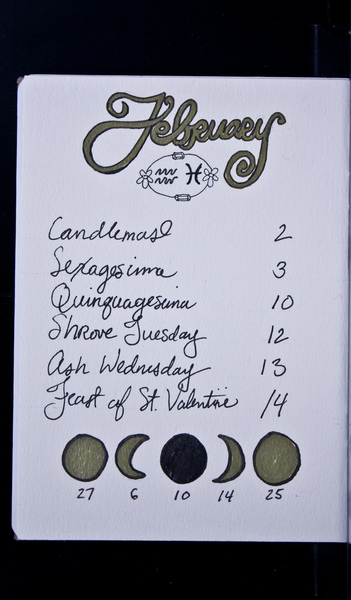 February
♒ ♓
Candlemass 2
Sexagesima 3
Quinquagesima 10
Shrove Tuesday 12
Ash Wednesday 13
Feast of St. Valentine 14
27 6 10 14 25